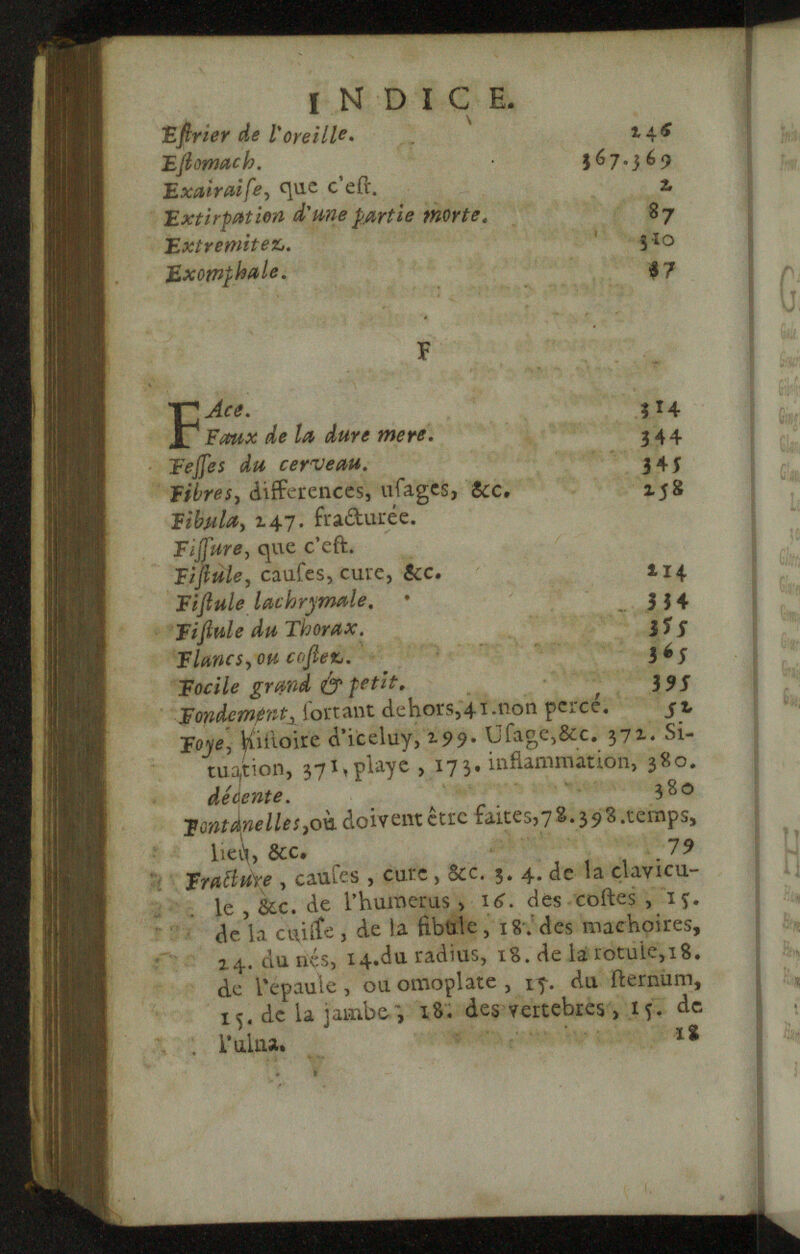 INDICE.
Eſtrier de l'oreille. 246
Eſtomach. 367.369
Exairaiſe, que c'eſt. 2
Extirpation d'une partie morte. 87
Extremitez. 310
Exomphale. 87
F
FAce. 314
Faux de la dure mere. 344
Feſſes du cerveau. 345
Fibres, differences, uſages, &c. 258
Fibula, 247. fracturée.
Fiſſure, que c'eſt.
Fiſtule, cauſes, cure, &c. 214
Fiſtule lachrymale. 334
Fiſtule du Thorax. 355
Flancs, ou coſtez. 365
Focile grand & petit. 395
Fondement, ſortant dehors, 41. non percé. 52
Foye, hiſtoire d'iceluy, 299. Uſage, &c. 372. Si-
tuation, 371, playe , 173. inflammation, 380.
décente. 380
Fontanelles, où doivent être faites, 78. 398. temps,
lieu, &c. 79
Fracture , cauſes , cure , &c. 3. 4. de la clavicu-
le , &c. de l'humerus , 16. des coſtes , 15.
de la cuiſſe , de la fibule , 18. des machoires,
24. du nés, 14. du radius, 18. de la rotule, 18.
de l'épaule , ou omoplate , 15. du ſternum,
15. de la jambe , 18. des vertebres , 15. de
l'ulna. 18